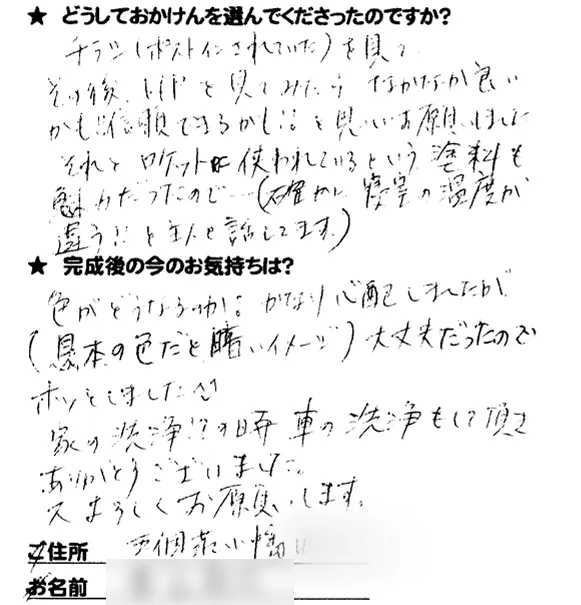 ★ どうしておかけんを選んでくださったのですか?
チラシ(ポストインされていた)を見て、
その後、HPを見てみたら なかなか良い
かも!!信頼できるかも!!と思いお願いしました
それと ロケットに使われているという 塗料も
魅力だったので…(確かに 寝室の温度が
違う!! と主人と話してます。)
★ 完成後の今のお気持ちは?
色がどうなるのか? かなり心配しましたが
(見本の色だと暗いイメージ) 大丈夫だったので
ホッとしました^^
家の洗浄!?の時 車の洗浄もして頂き
ありがとうございました。
又よろしくお願いします。
ご住所
お名前